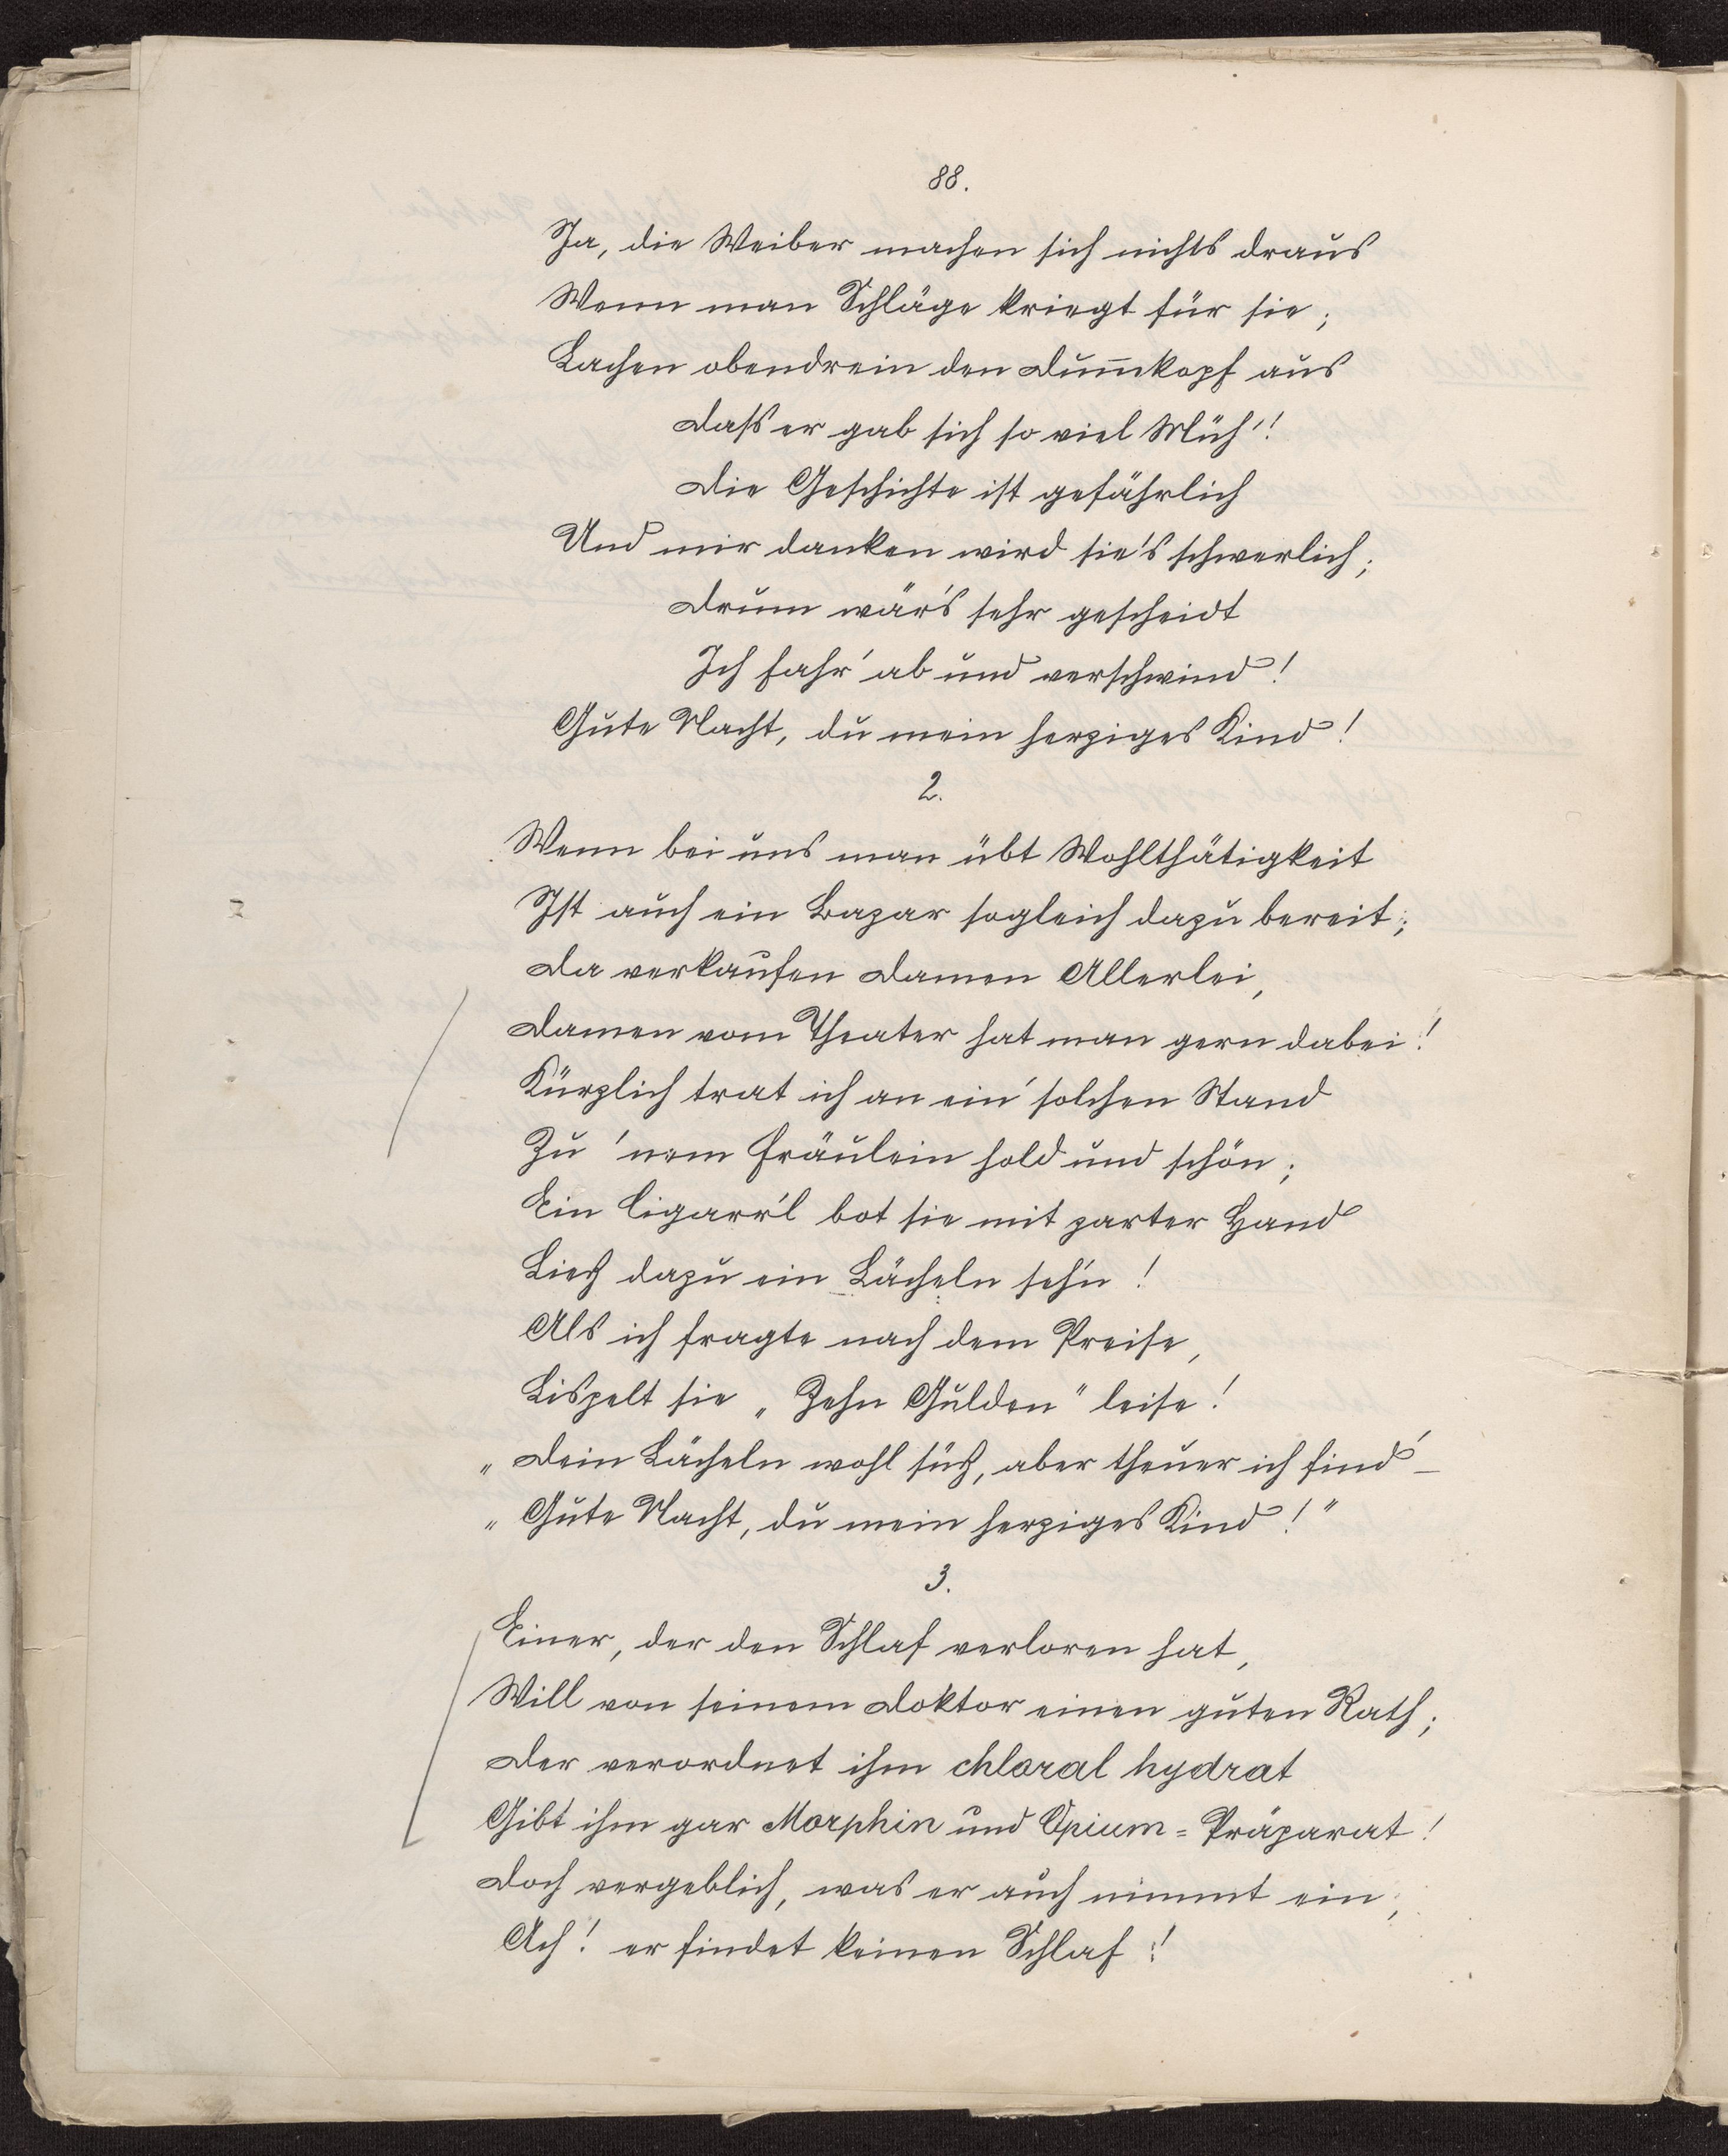 88.
Ja, die Weiber machen sich nichts draus
Wenn man Schläge kriegt für sie;
Lachen obendrein den Dum̅kopf aus
Dass er gab sich so viel Müh'!
Die Geschichte ist gefährlich
Und mir danken wird sie's schwerlich;
Drum wär's sehr gescheidt
Ich fahr' ab und verschwind!
Gute Nacht, du mein herziges Kind!
2.
Wenn bei uns man übt Wohlthätigkeit
Ist auch ein Bazar sogleich dazu bereit;
Da verkaufen Damen Allerlei,
Damen vom Theater hat man gern dabei!
Kürzlich trat ich an ein' solchen Stand
Zu 'nem Fräulein hold und schön;
Ein Cigarr'l bot sie mit zarter Hand
Ließ dazu ein Lächeln seh'n!
Als ich fragte nach dem Preise,
Lispelt sie „Zehn Gulden" leise!
„Dein Lächeln wohl süß, aber theuer ich find' –
„Gute Nacht, du mein herziges Kind!"
3.
Einer, der den Schlaf verloren hat,
Will von seinem Doktor einen guten Rath;
Der verordnet ihm chloral hydrat
Gibt ihm gar Morphin und Opium=Präparat!
Doch vergeblich, was er auch nimmt ein,
Ach! er findet keinen Schlaf!